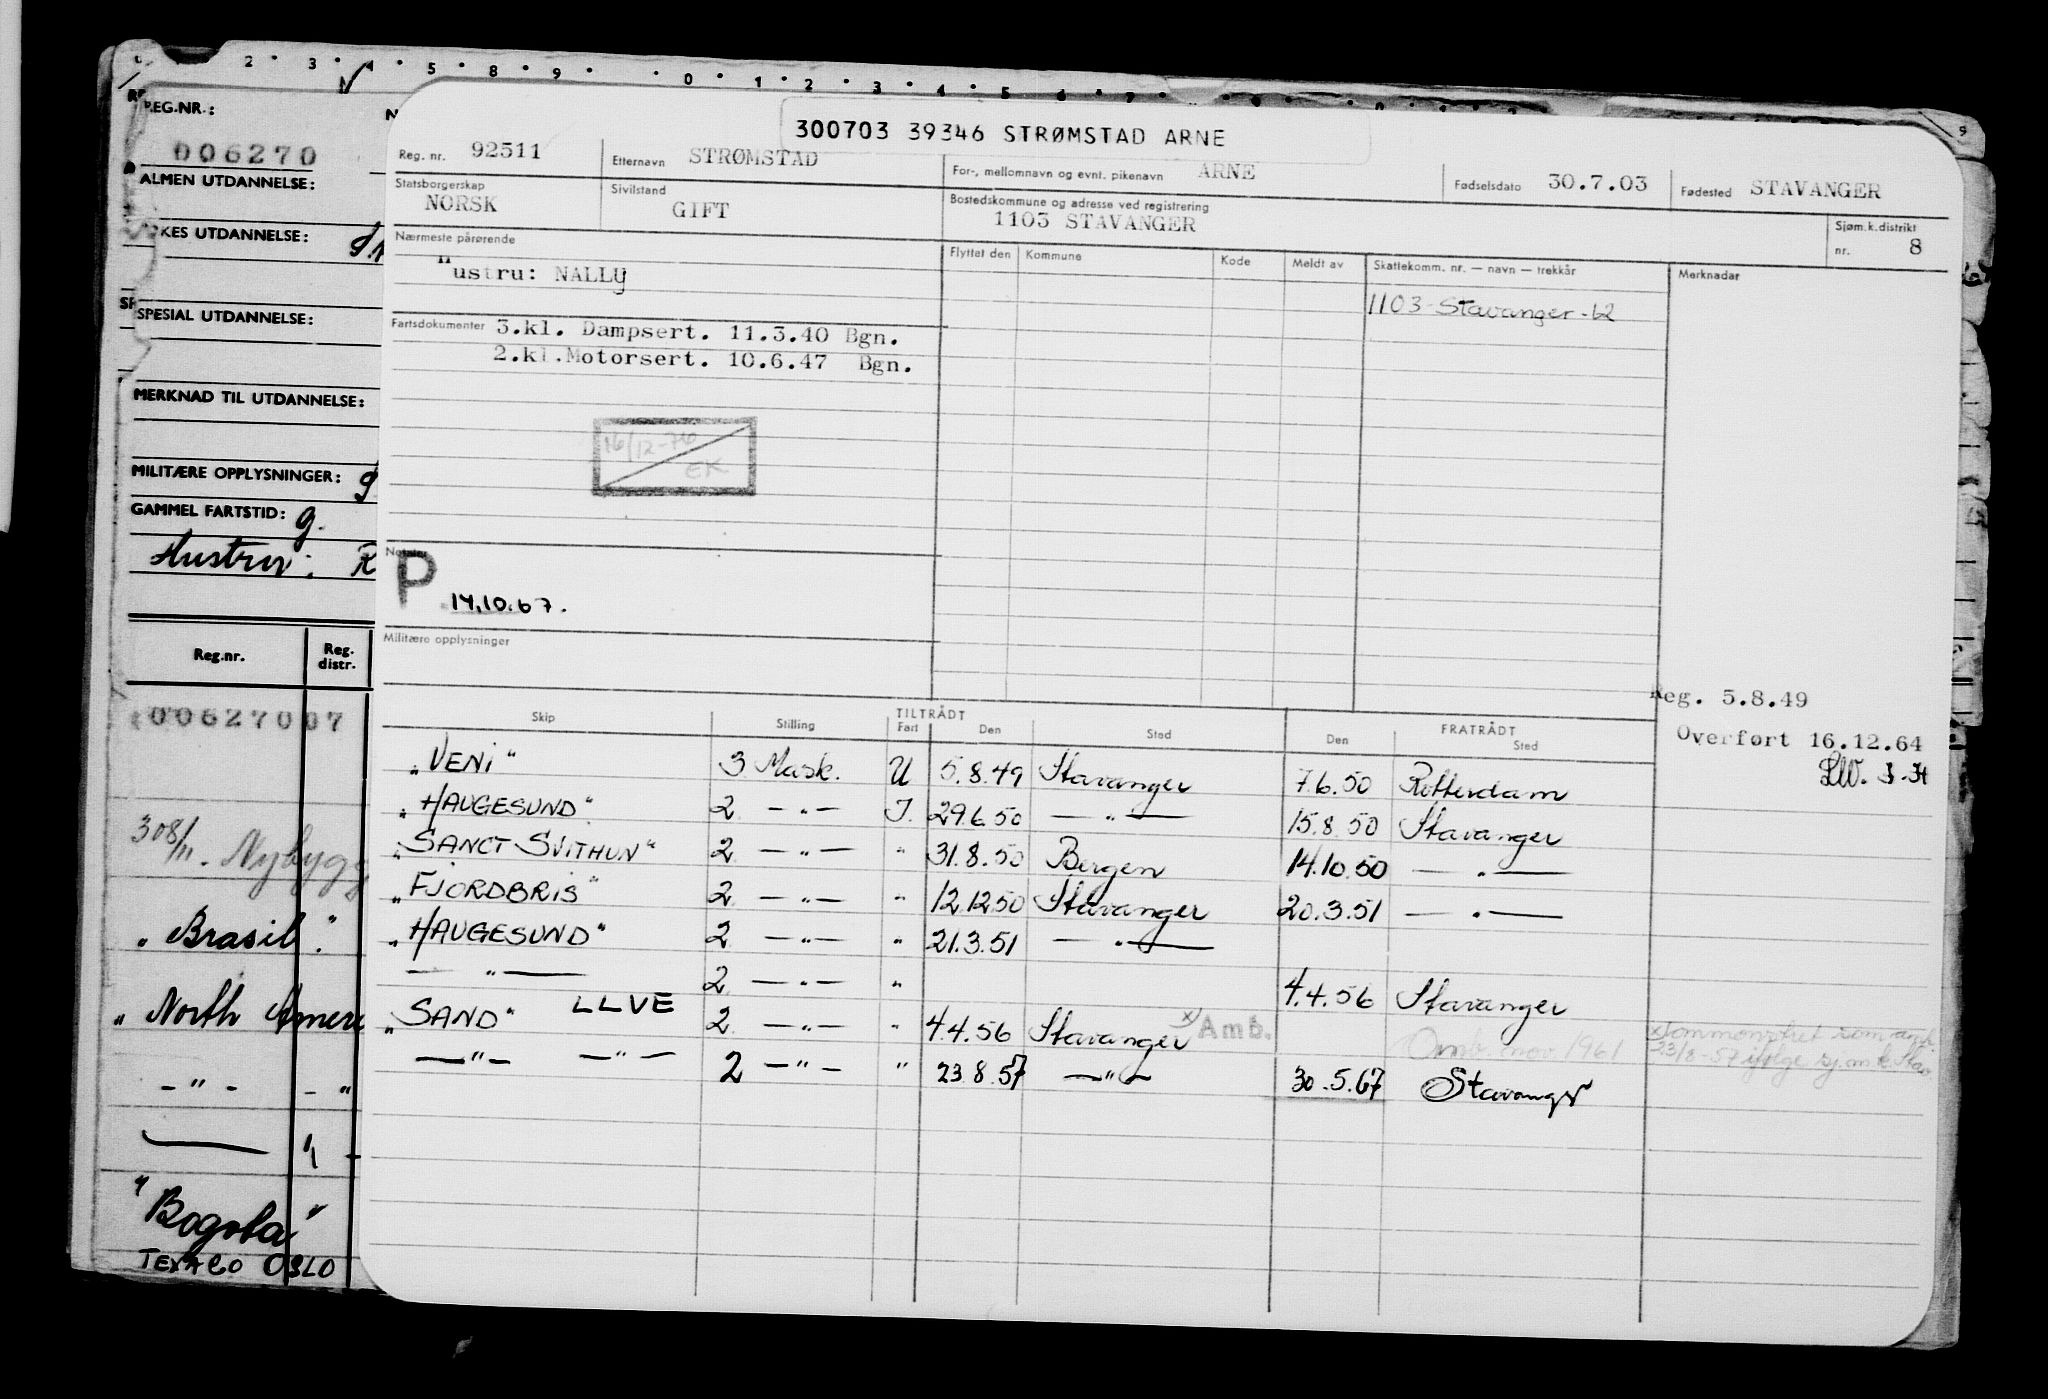 300703 39346 STRØMSTAD ARNE
Reg. nr. 92511 Etternavn STRØMSTAD For-, mellomnavn og evnt. pikenavn ARNE Fødselsdato 30.7.03 Fødested STAVANGER
Statsborgerskap NORSK Sivilstand GIFT Bostedskommune og adresse ved registrering 1103 STAVANGER Sjøm.k.distrikt nr. 8
Nærmeste pårørende Flyttet den Kommune Kode Meldt av Skattekomm. nr. — navn — trekkår Merknader
Hustru: NALLY
1103-Stavanger-62
Fartsdokumenter 3.kl. Dampsert. 11.3.40 Bgn.
2.kl.Motorsert. 10.6.47 Bgn.
16/12-76
EK
Notater
P 14.10.67.
Militære opplysninger
Reg. 5.8.49
Overført 16.12.64
TILTRÅDT FRATRÅDT
Skip Stilling Fart Den Sted Den Sted
"VENI" 3 Mask. U 5.8.49 Stavanger 7.6.50 Rotterdam
"HAUGESUND" 2 — " — I. 29.6.50 — " — 15.8.50 Stavanger
"SANCT SVITHUN" 2 — " — " 31.8.50 Bergen 14.10.50 — " —
"FJORDBRIS" 2 — " — " 12.12.50 Stavanger 20.3.51 — " —
"HAUGESUND" 2 — " — " 21.3.51 — " —
— " — 2 — " — " 4.4.56 Stavanger
"SAND" LLVE 2 — " — " 4.4.56 Stavanger x) Amb.
Omb. nov. 1961
— " — — " — 2 — " — " 23.8.57 — " — 30.5.67 Stavanger
REG.NR.:
006270
ALMEN UTDANNELSE:
UTDANNELSE:
SPESIAL UTDANNELSE:
MERKNAD TIL UTDANNELSE:
MILITÆRE OPPLYSNINGER:
GAMMEL FARTSTID: g.
Hustru:
Reg.nr. Reg. distr.
00627007
308/11. Nybygg
"Brasil".
"North Amer
— " — — "
— "
"Bogota"
TEXACO OSLO